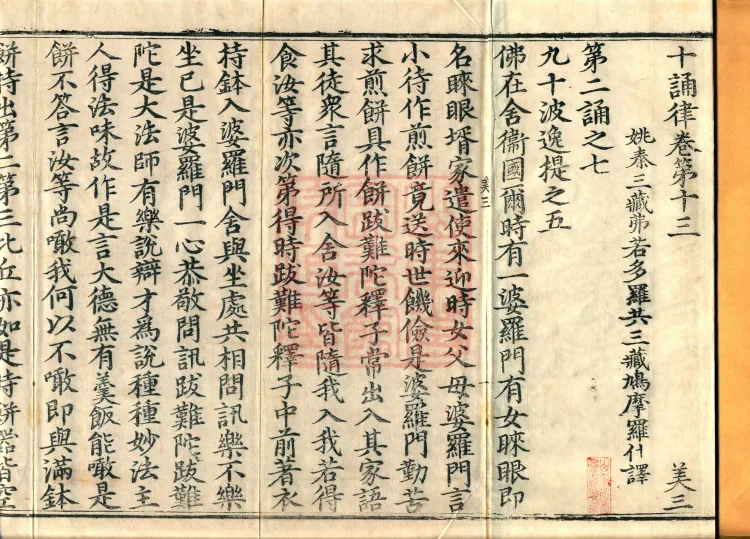 十誦律卷第十三 美三
姚秦三藏弗若多羅共三藏鳩摩羅什譯
第二誦之七
九十波逸提之五
佛在舍衞國爾時有一婆羅門有女睞眼即
名睞眼壻家遣使來迎時女父母婆羅門言
小待作煎餅竟送時世饑儉是婆羅門勤苦
求煎餅具作餅跋難陀釋子常出入其家語
其徒衆言隨所入舍汝等皆隨我入我若得
食汝等亦次第得時跋難陀釋子中前著衣
持鉢入婆羅門舍與坐處共相問訊樂不樂
坐已是婆羅門一心恭敬問訊跋難陀跋難
陀是大法師有樂說辯才為說種種妙法主
人得法味故作是言大德無有羹飯能噉是
餅不答言汝等尚噉我何以不噉即與滿鉢
餅持出第二第三比丘亦如是持餅器皆空
美三